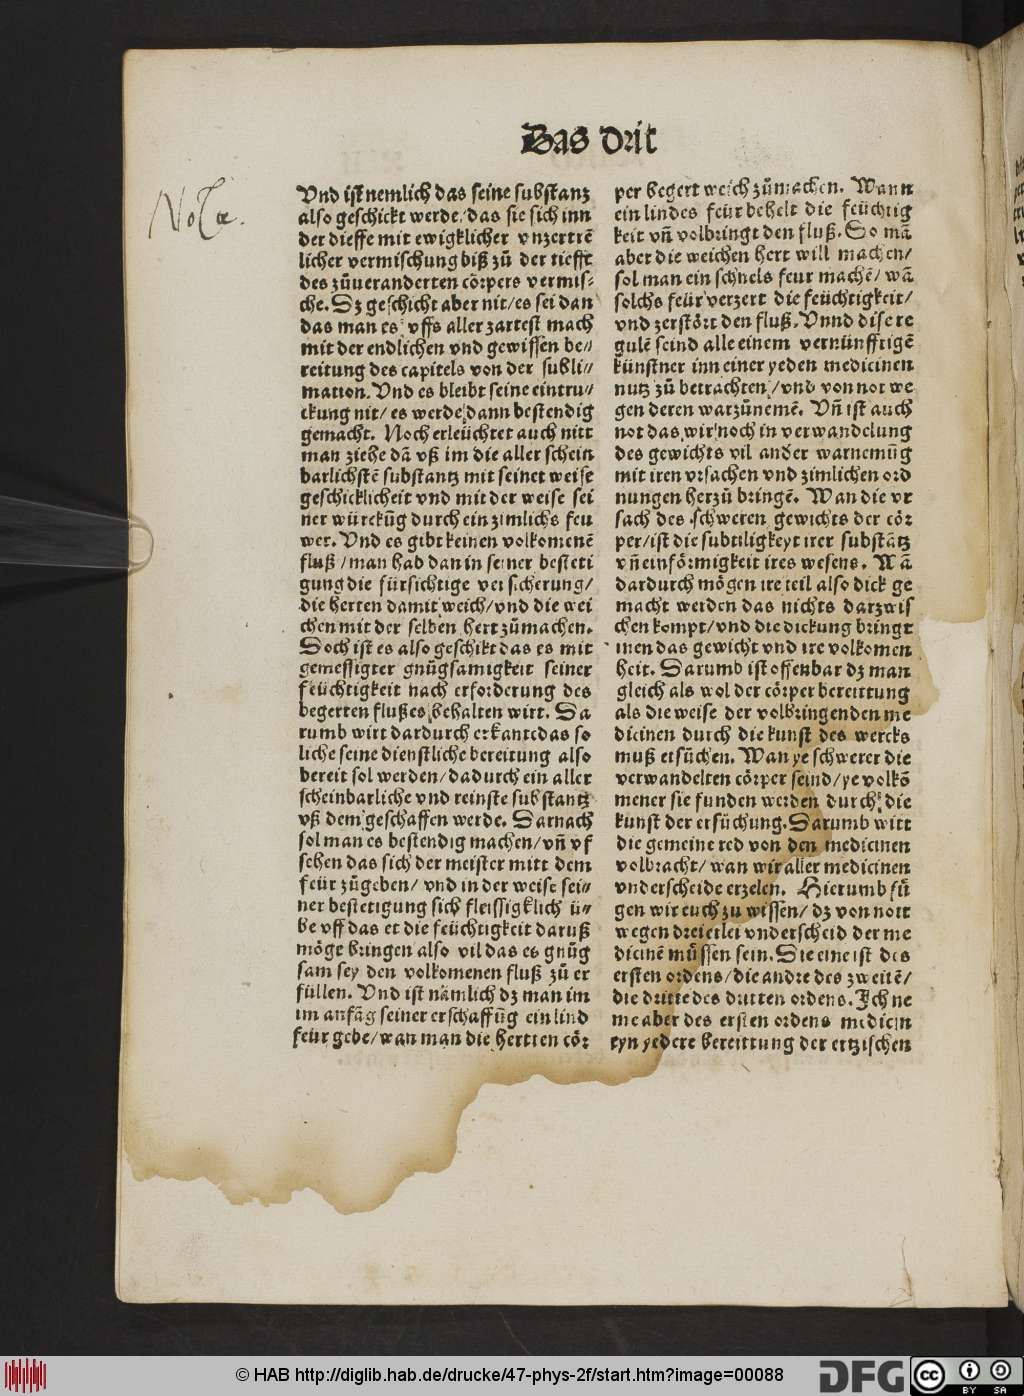 Das drit
Nota.
Vnd ist nemlich das seine substantz
also geschickt werde/das sie sich inn
der dieffe mit ewigklicher vnzertrē
licher vermischung biß zů der tiefft
des zůueranderten cörpers vermis⸗
che. Dz geschicht aber nit/es sei dan
das man es vffs aller zartest mach
mit der endlichen vnd gewissen be⸗
reitung des capitels von der subli⸗
mation. Vnd es bleibt seine eintru⸗
ckung nit/es werde dann bestendig
gemacht. Noch erleüchtet auch nitt
man ziehe dā vß im die aller schein
barlichstē substantz mit seinet weise
geschicklicheit vnd mit der weise sei
ner würckūg durch ein zimlichs feu
wer. Vnd es gibt keinen volkomenē
fluß/man hab dan in seiner besteti
gung die fürsichtige versicherung/
die herten damit weich/vnd die wei
chen mit der selben hert zůmachen.
Doch ist es also geschikt das es mit
gemessigter gnůgsamigkeit seiner
feüchtigkeit nach erforderung des
begerten flußes behalten wirt. Da
rumb wirt dardurch erkant das so
liche seine dienstliche bereitung also
bereit sol werden/dadurch ein aller
scheinbarliche vnd reinste substantz
vß dem geschaffen werde. Darnach
sol man es bestendig machen/vñ vf
sehen das sich der meister mitt dem
feür zůgeben/vnd in der weise sei⸗
ner bestetigung sich fleissigklich ü⸗
be vff das er die feüchtigkeit daruß
möge bringen also vil das es gnůg
sam sey den volkomenen fluß zů er
füllen. Vnd ist nämlich dz man im
im anfāg seiner erschaffūg ein lind
feür gebe/wan man die hertten cör⸗
per begert weich zůmachen. Wann
ein lindes feür behelt die feüchtig
keit vñ volbringt den fluß. So mā
aber die weichen hert will machen/
sol man ein schnels feur machē/wā
solchs feür verzert die feüchtigkeit/
vnd zerstört den fluß. Vnnd dise re
gulē seind alle einem vernünfftigē
künstner inn einer yeden medicinen
nutz zů betrachten/vnd von not we
gen deren warzůnemē. Vñ ist auch
not das wir noch in verwandelung
des gewichts vil ander warnemūg
mit iren vrsachen vnd zimlichen ord
nungen herzů bringē. Wan die vr
sach des schweren gewichts der cör
per/ist die subtiligkeyt irer substātz
vñ einförmigkeit ires wesens. Wā
dardurch mögen ire teil also dick ge
macht werden das nichts darzwis
chen kompt/vnd die dickung bringt
inen das gewicht vnd ire volkomen
heit. Darumb ist offenbar dz man
gleich als wol der cörper bereittung
als die weise der volbringenden me
dicinen durch die kunst des wercks
muß ersůchen. Wan ye schwerer die
verwandelten cörper seind/ye volkō
mener sie funden werden durch die
kunst der ersůchung. Darumb wirt
die gemeine red von den medicinen
volbracht/wan wir aller medicinen
vnderscheide erzelen. Hierumb fü
gen wir euch zu wissen/dz von nott
wegen dreierlei vnderscheid der me
dicinē müssen sein. Die eine ist des
ersten ordens/die andre des zweitē/
die dritte des dritten ordens. Ich ne
me aber des ersten ordens medicin
eyn yedere bereittung der ertzischen
© HAB http://diglib.hab.de/drucke/47-phys-2f/start.htm?image=00088
DFG
cc
BY SA